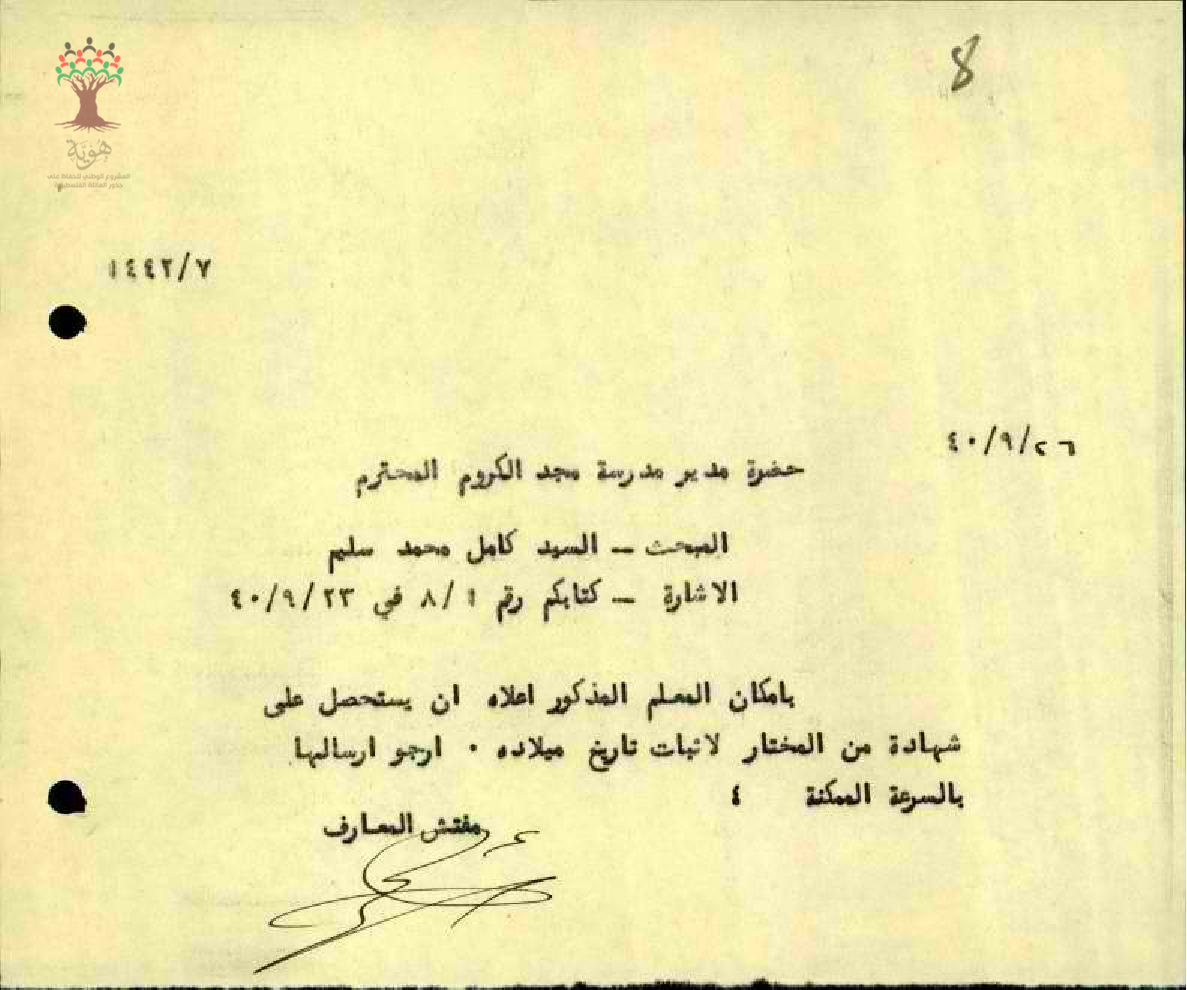 8
هوية
المشروع الوطني للحفاظ على
جذور العائلة الفلسطينية
١٤٤٢/٧
٤٠/٩/٢٦
حضرة مدير مدرسة مجد الكروم المحترم
المبحث ـ السيد كامل محمد سليم
الاشارة ـ كتابكم رقم ٨/١ في ٤٠/٩/٢٣
بامكان المعلم المذكور اعلاه ان يستحصل على
شهادة من المختار لاثبات تاريخ ميلاده ٠ ارجو ارسالها
بالسرعة الممكنة ٤
مفتش المعارف